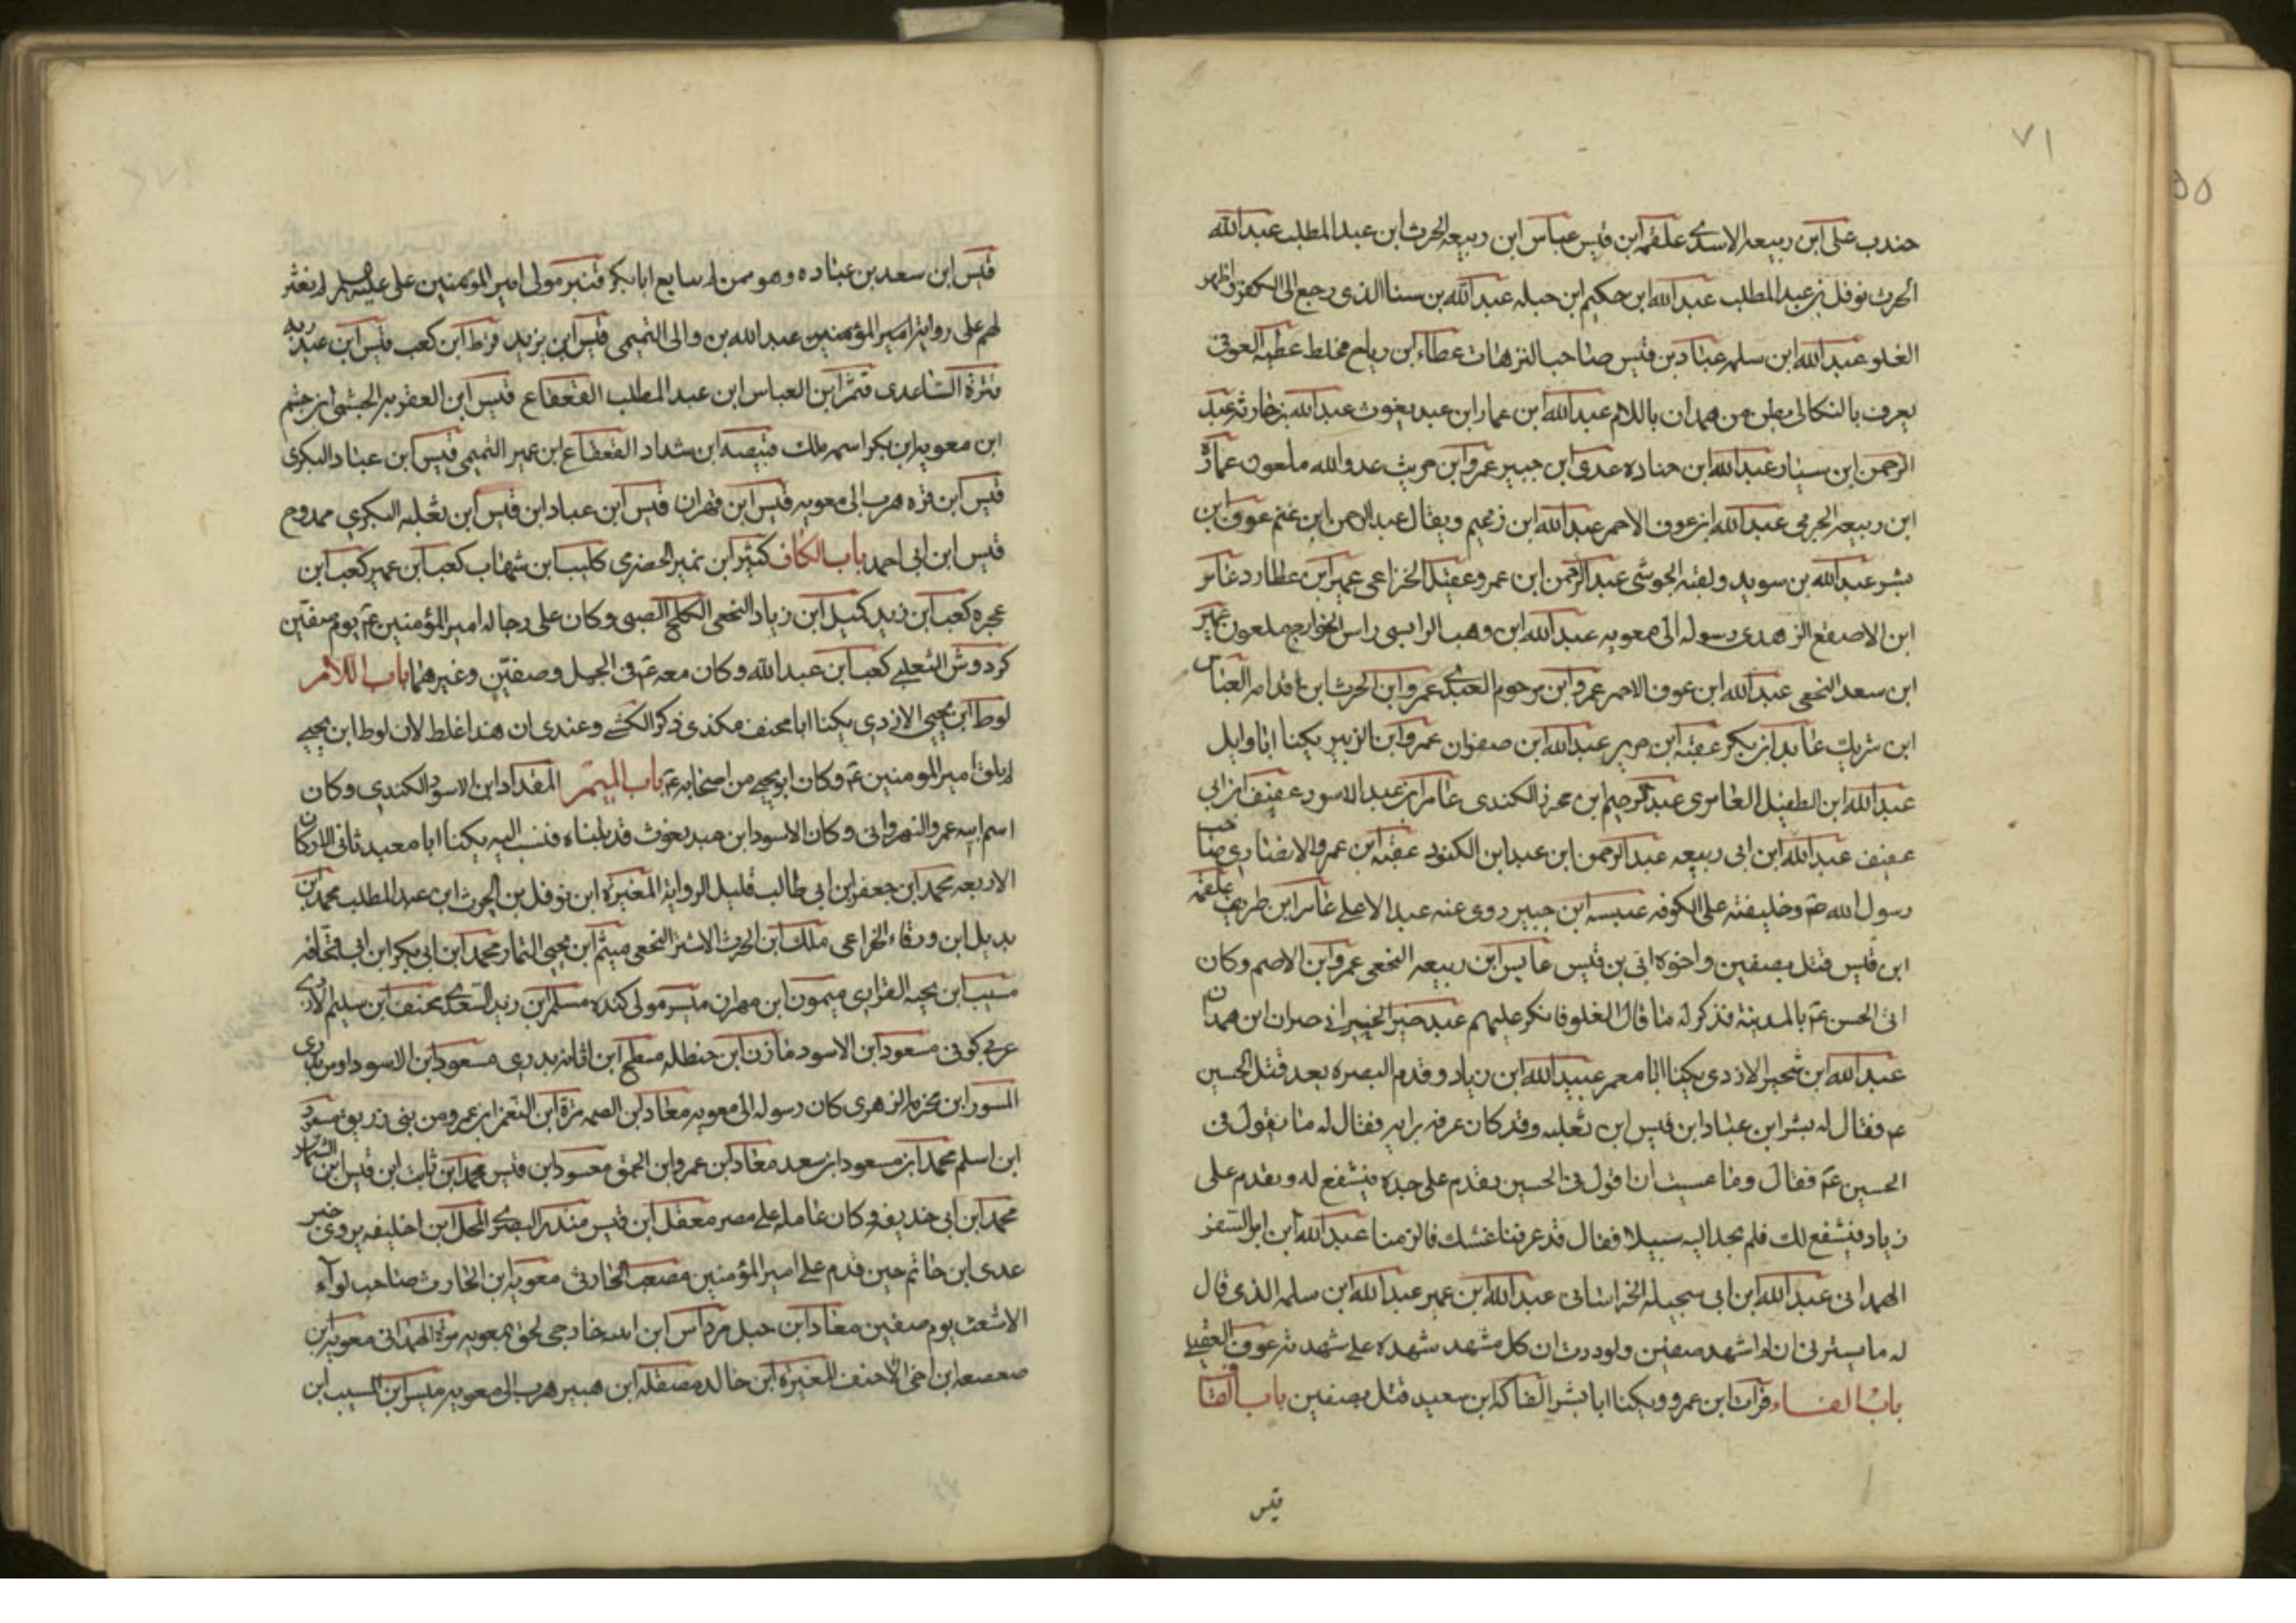 ٧١
جندب على ابن ربيعه الاسدي علقمه ابن قيس عباس ابن ربيعه الحرث ابن عبد المطلب عبد الله
الحرث نوفل بن عبد المطلب عبد الله ابن حكيم ابن جبله عبد الله بن سبا الذى رجع الى الكفر واظهر
الغلو عبد الله ابن سلمه عباد بن قيس صاحب النزهات عطاء ابن رياح مخلط عطيه العوفى
يعرف بالنكالى بطن من همدان باللام عبد الله ابن عمار ابن عبد يغوث عبد الله بن خارثه عبد
الرحمن ابن سيار عبد الله ابن جناده عدى ابن جبير عمرو ابن حريث عدو الله ملعون عمارة
ابن ربيعه الجرمى عبد الله ابن عوف الاحمر عبد الله ابن زعيم ويقال عبد الرحمن ابن غنم عوف ابن
بشر عبد الله بن سويد ولقبه الجوشى عبد الرحمن ابن عمرو عقبه الخزاعى عمير ابن عطارد عامر
ابن الاصقع الزهدى رسوله الى معويه عبد الله ابن وهب الراسبى راس الخوارج ملعون عمير
ابن سعد النخعى عبد الله ابن عوف الاحمر عمرو ابن مرحوم العبدى عمرو ابن الحرث ابن قدامه العباس
ابن شريك عايد ابن بكر عقبه ابن جرير عبد الله ابن صفوان عمرو ابن الزبير يكنا ابا وايل
عبد الله ابن الطفيل العامرى عبد الرحيم ابن محرز الكندى عامر ابن عبد الاسود عفيف ابن ابى
عفيف عبد الله ابن ابى ربيعه عبد الرحمن ابن عبد ابن الكنود عقبه ابن عمرو الانصارى صاحب
رسول الله ص وخليفته على الكوفه عبيسه ابن جبير روى عنه عبد الاعلى عامر ابن طريف علقمه
ابن قيس قتل بصفين واخوه ابى بن قيس عابس ابن ربيعه النخعى عمرو ابن الاصم وكان
اتى الحسن ع بالمدينة فذكر له ما قال الغلو فانكر عليهم عبد خير الخيرانى خيران ابن همدان
عبد الله ابن شجير الازدى يكنا ابا معمر عبيد الله ابن زياد وقدم البصره بعد قتل الحسين
ع فقال له بشر ابن عباد ابن قيس ابن ثعلبه وقد كان عرف برايه فقال له ما يقول فى
الحسين ع فقال وما عسيت ان اقول فى الحسين يقدم على جده فيشفع له ويقدم على
زياد فيشفع لك فلم يجد اليه سبيلا فقال قد عرفنا غشك فالزمنا عبد الله ابن ابى السفر
الهمدانى عبد الله ابن ابى سجيله الخراسانى عبد الله ابن عمير عبد الله ابن سلمه الذى قال
له ما يسرنى ان لم اشهد صفين ولوددت ان كل مشهد شهده على شهدته عوف العقيلى
باب الفاء فرات ابن عمرو ويكنا ابا بشر الفاكه ابن سعيد قتل بصفين باب القاف
قيس
قيس ابن سعد بن عباده وهو ممن لم يبايع ابا بكر قنبر مولى امير المومنين على عليه السلم لم يعثر
لهم على رواية امير المؤمنين عبد الله بن والى التميمى قيس ابن يزيد قرط ابن كعب قيس ابن عبد ربه
قرة الساعدى قثم ابن العباس ابن عبد المطلب القعقاع قيس ابن العقديه الجشمى ابن جشم
ابن معويه ابن بكر اسمه ملك قبيصه ابن شداد القعقاع ابن عمير التميمى قيس ابن عباد البكرى
قيس ابن قره هرب الى معويه قيس ابن قهران قيس ابن عباد ابن قيس ابن ثعلبه البكري ممدوح
قيس ابن ابى احمد باب الكاف كثير ابن نمير الحضرى كليب ابن شهاب كعب ابن عمير كعب ابن
عجره كعب ابن زيد كميل ابن زياد النخعى الكلح الضبى وكان على رجاله امير المؤمنين ع يوم صفين
كردوش التعلبى كعب ابن عبد الله وكان معه ع فى الجمل وصفين وغيرهما باب اللام
لوط ابن يحيى الازدي يكنا ابا مخنف هكذى ذكر الكشى وعندى ان هذا غلط لان لوط ابن يحيى
لم يلق امير المومنين ع وكان ابو يحيى من اصحابه ع باب الميم المقداد ابن الاسود الكندي وكان
اسم ابيه عمرو النهروانى وكان الاسود ابن عبد يغوث قد تبناه فنسب اليه يكنا ابا معبد ثانى الاركان
الاربعه محمد ابن جعفر ابن ابى طالب قليل الرواية المغيرة ابن نوفل بن الحرث ابن عبد المطلب محمد ابن
بديل ابن ورقاء الخزاعى ملك ابن الحرث الاشتر النخعى ميثم ابن يحيى التمار محمد ابن ابى بكر ابن ابى قحافه
مسيب ابن نجبه الفزاري ميمون ابن مهران ميسر مولى كنده مسلم ابن زيد السعدى مخنف ابن سليم الازدى
عربى كوفى مسعود ابن الاسود مازن ابن حنظله مسطح ابن اثاثه بدرى مسعود ابن الاسود اوس بدرى
المسور ابن مخرمه الزهرى كان رسوله الى معويه معاد ابن الصمه مرة ابن النعمن ابن عمرو من بنى زريق مسعود
ابن اسلم محمد ابن مسعود ابن سعد معاد ابن عمرو ابن الحمق مسعود ابن قيس محمد ابن ثابت ابن قيس ابن الشماس
محمد ابن ابى حذيفه وكان عامله على مصر معقل ابن قيس منذر البصرى المحل ابن اخليفه يروى خبر
عدى ابن حاتم حين قدم على امير المؤمنين مصعب الحارثى معويه ابن الحارث صاحب لوآء
الاشعث يوم صفين معاد ابن جبل مرداس ابن ادنه خارجى لحق بمعويه مره الهمدانى معويه ابن
صعصعه ابن اخى الاحنف المغيرة ابن خالد مصقله ابن هبيره هرب الى معويه ميسر ابن المسيب ابن